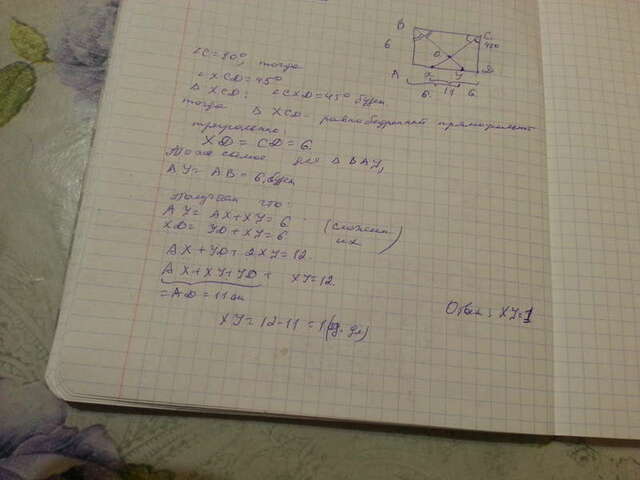 B
C
6
45°
O
A
X
Y
D
6
11
6
∠C=90°, тогда
∠XCD=45°
Δ XCD: ∠CXD=45° будет
тогда Δ XCD - равнобедренный прямоугольн
треугольник:
XD= CD=6.
То же самое для Δ BAY,
AY= AB=6.
Получаем что:
AY= AX+XY=6
XD= YD+XY=6
(сложим их)
AX+YD+2XY=12.
AX+XY+YD+ XY=12.
=AD=11см
XY=12-11=1(
Ответ: XY=1